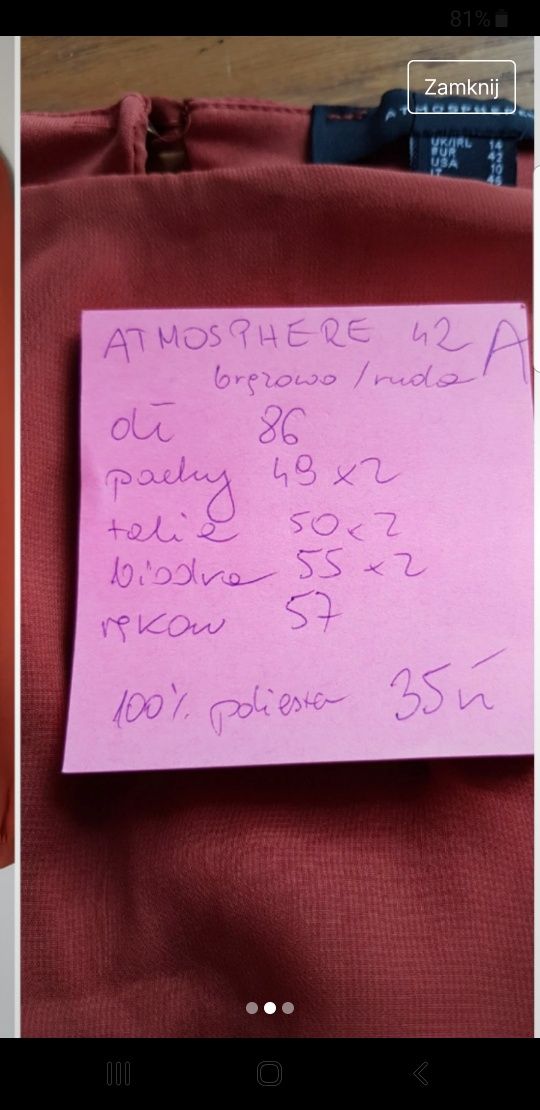 81%
Zamknij
ATMOSPHERE
UK/IRL 14
EUR 42
USA 10
IT 46
ATMOSPHERE 42 A
brązowo / ruda
dł 86
pachy 49 x 2
talia 50 x 2
biodra 55 x 2
rękaw 57
100% poliester 35 zł